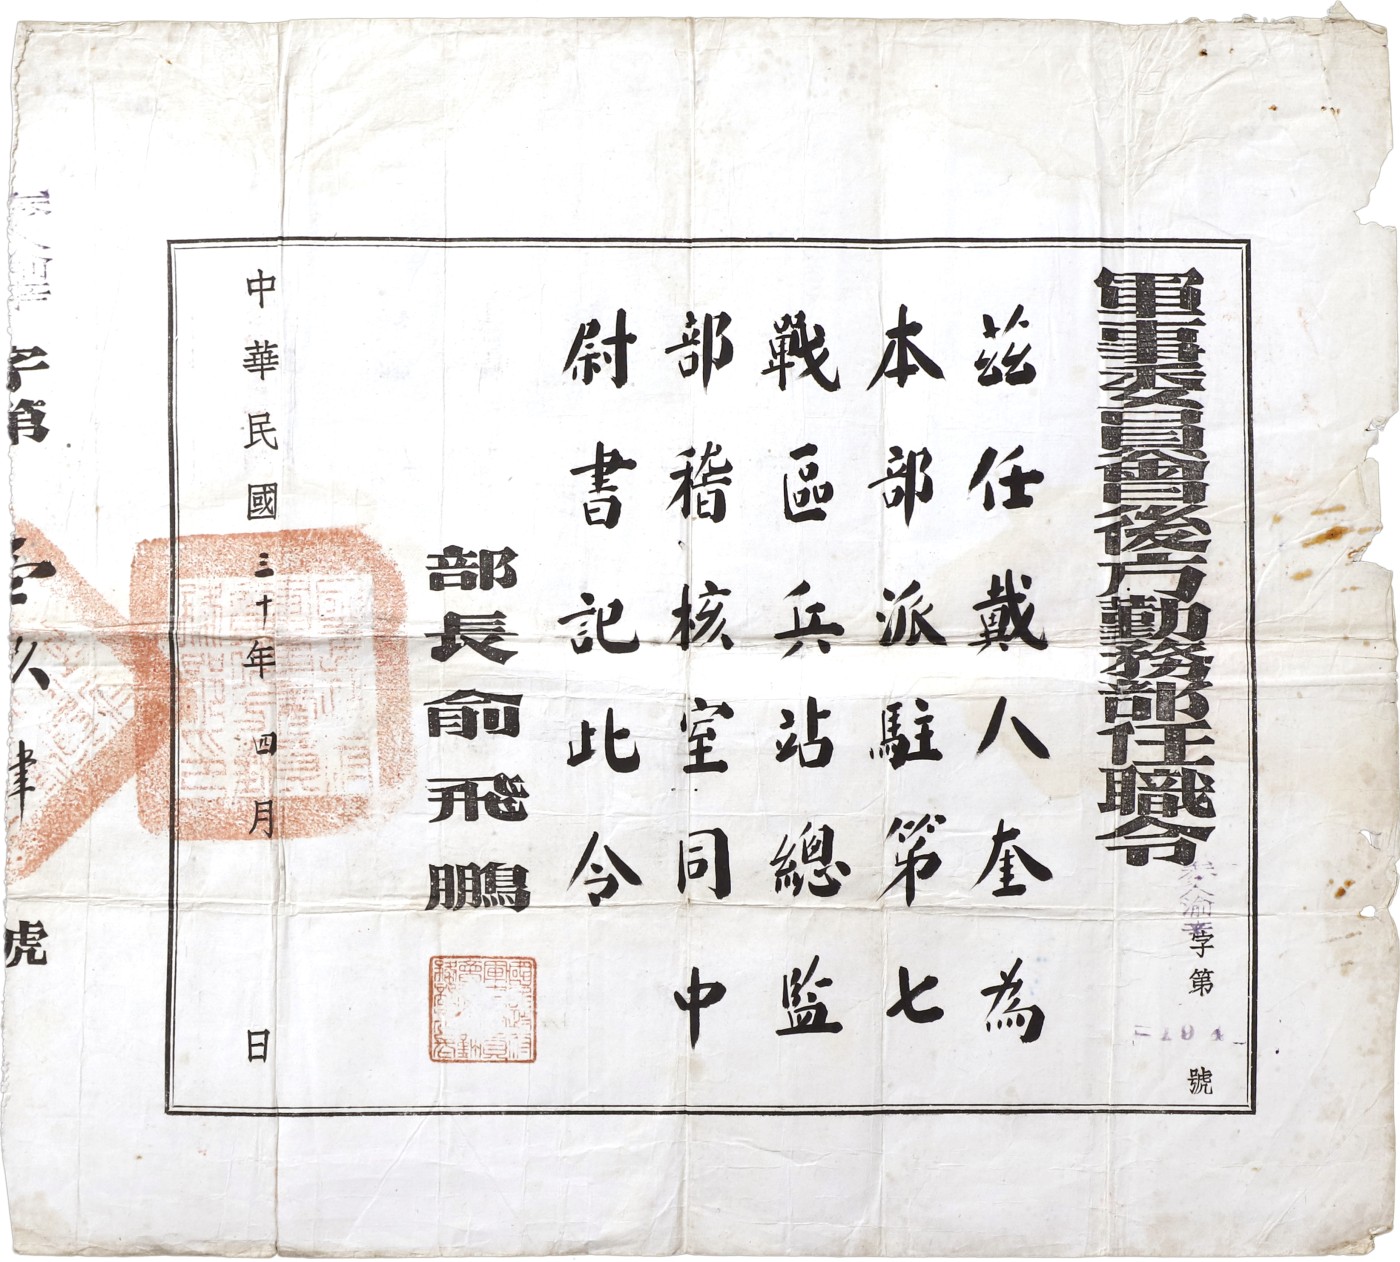 軍事委員會後方勤務部任職令
字第
號
茲任戴人奎為
本部派駐第七
戰區兵站總監
部稽核室同中
尉書記此令
部長俞飛鵬
中華民國三十年四月 日
字第
號